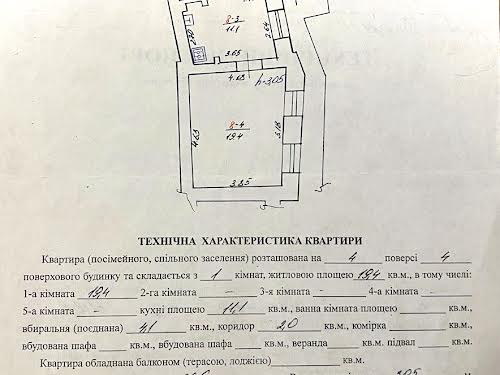 8-3
11,1
2.64
3.65
4.18
h=3,05
8-4
19.4
4.63
5.18
3.85
ТЕХНІЧНА ХАРАКТЕРИСТИКА КВАРТИРИ
Квартира (посімейного, спільного заселення) розташована на 4 поверсі 4
поверхового будинку та складається з 1 кімнат, житловою площею 19,4 кв.м., в тому числі:
1-а кімната 19,4 2-га кімната - 3-я кімната - 4-а кімната -
5-а кімната - кухні площею 11,1 кв.м., ванна кімната площею кв.м.,
вбиральня (поєднана) 4,1 кв.м., коридор 2,0 кв.м., комірка кв.м.,
вбудована шафа кв.м., вбудована шафа кв.м., веранда кв.м. підвал кв.м.
Квартира обладнана балконом (терасою, лоджією) кв.м.